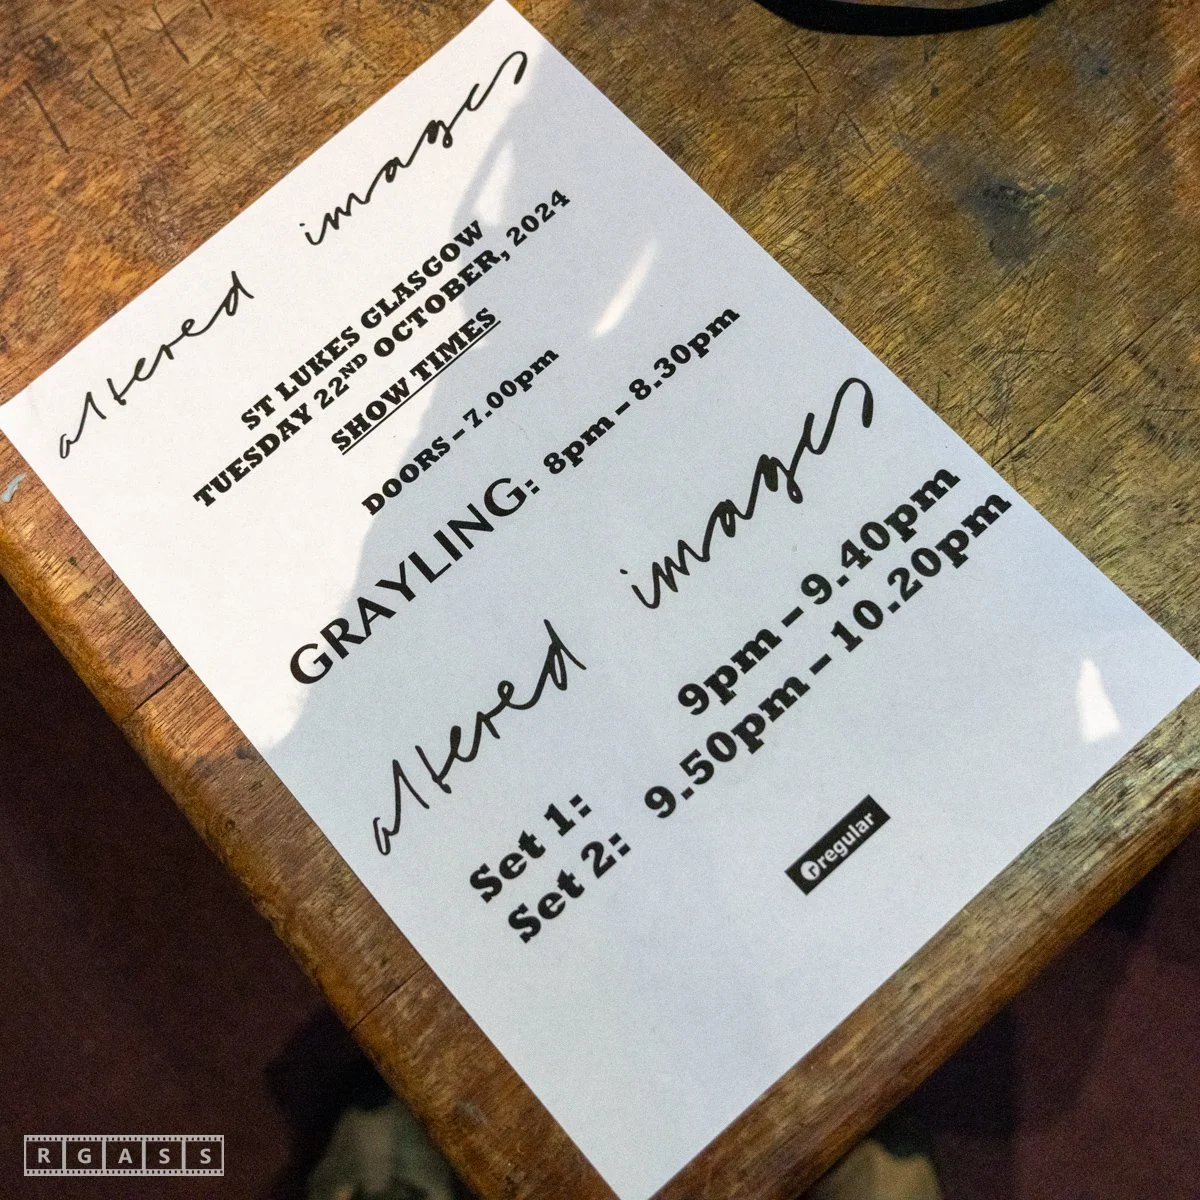 altered images
ST LUKES GLASGOW
TUESDAY 22ND OCTOBER, 2024
SHOW TIMES
DOORS – 7.00pm
GRAYLING: 8pm – 8.30pm
altered images
Set 1: 9pm – 9.40pm
Set 2: 9.50pm – 10.20pm
rregular
RGASS